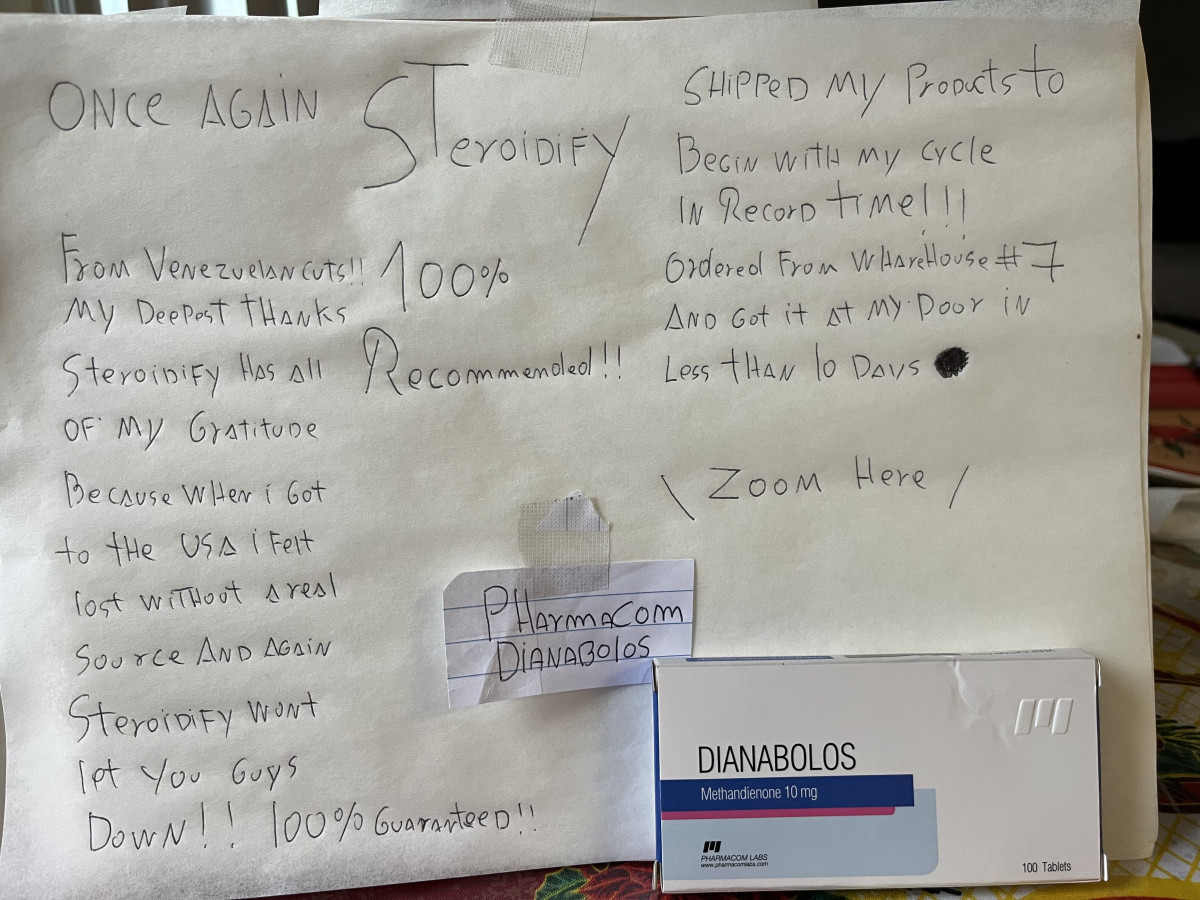 ONCE AGAIN STEROIDIFY
From VENEZUELAN CUTS!!
MY DEEPEST THANKS
STEROIDIFY HAS All
OF MY GRATITUDE
BECAUSE WHEN i GOT
to tHE USA i FElt
lost WitHOUt A real
SOUrce AND AGAIN
STEROIDIFY WONt
let YOU GUYS
DOWN!! 100% GUARANTEED!!
100%
RECOMMENDED!!
SHIPPED MY PRODUCTS tO
BEGIN WitH MY CYCLE
IN RECORD tIME!!!
Ordered From WHAreHOUSE #7
AND Got it At MY DOOR IN
LESS tHAN 10 DAYS
\ ZOOM HERE /
PHARMACOM
DIANABOLOS
DIANABOLOS
Methandienone 10 mg
PHARMACOM LABS
www.pharmacomlabs.com
100 Tablets